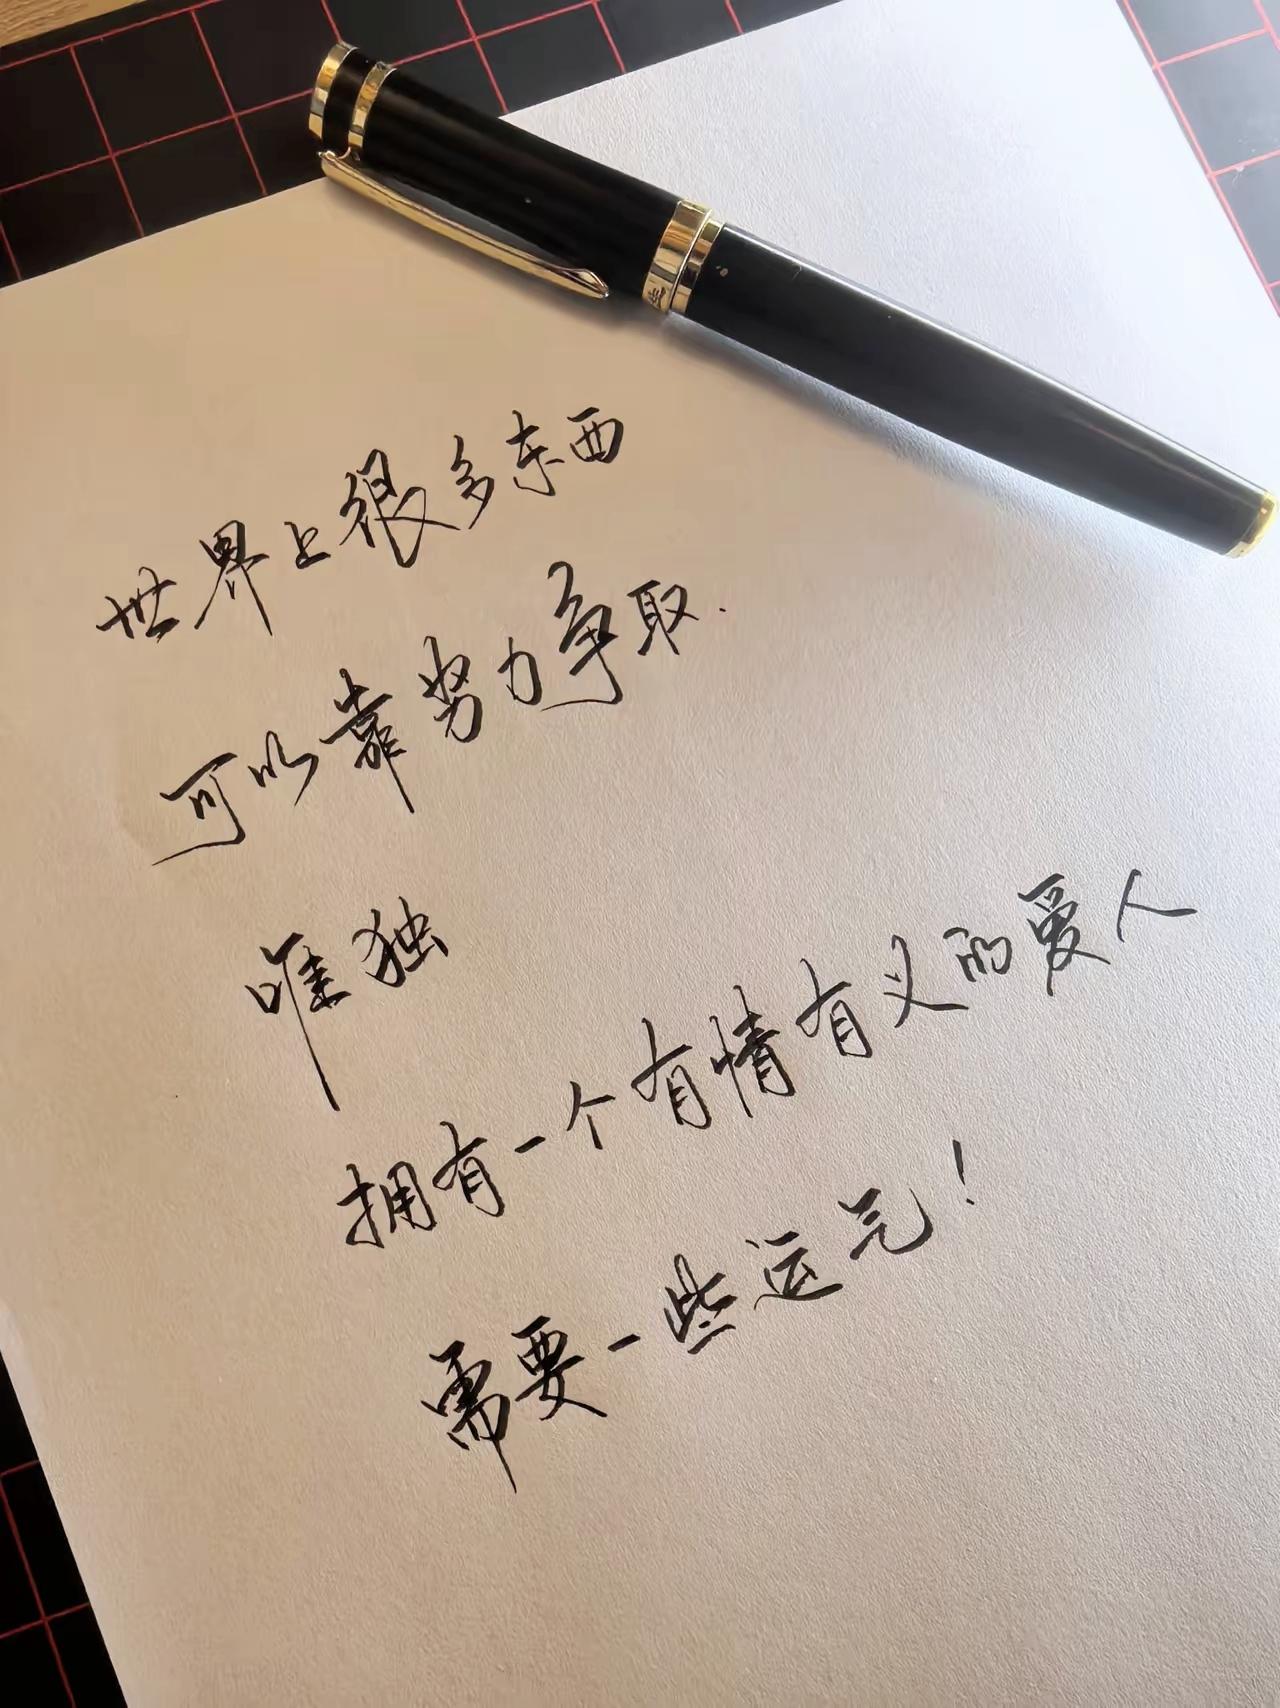 世界上很多东西
可以靠努力争取.
唯独
拥有一个有情有义的爱人
需要一些运气!